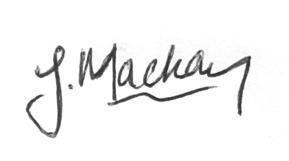 J. Mackay